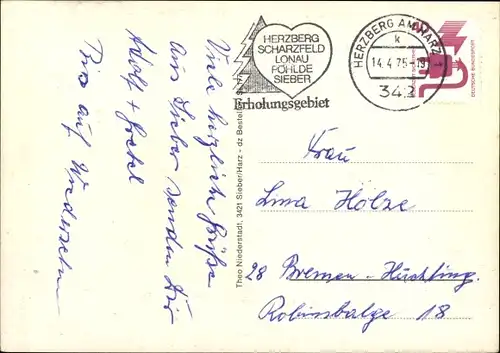 Viele herzliche Grüße
aus Sieber senden Dir
Adolf + Gretel
Bis auf Wiedersehn
HERZBERG
SCHARZFELD
LONAU
PÖHLDE
SIEBER
Erholungsgebiet
HERZBERG AM HARZ
k
14.4.75-19
342
DEUTSCHE BUNDESPOST
Theo Niederstadt, 3421 Sieber/Harz - dz
Frau
Lina Hölze
28 Bremen-Huchting
Robinsbalge 18